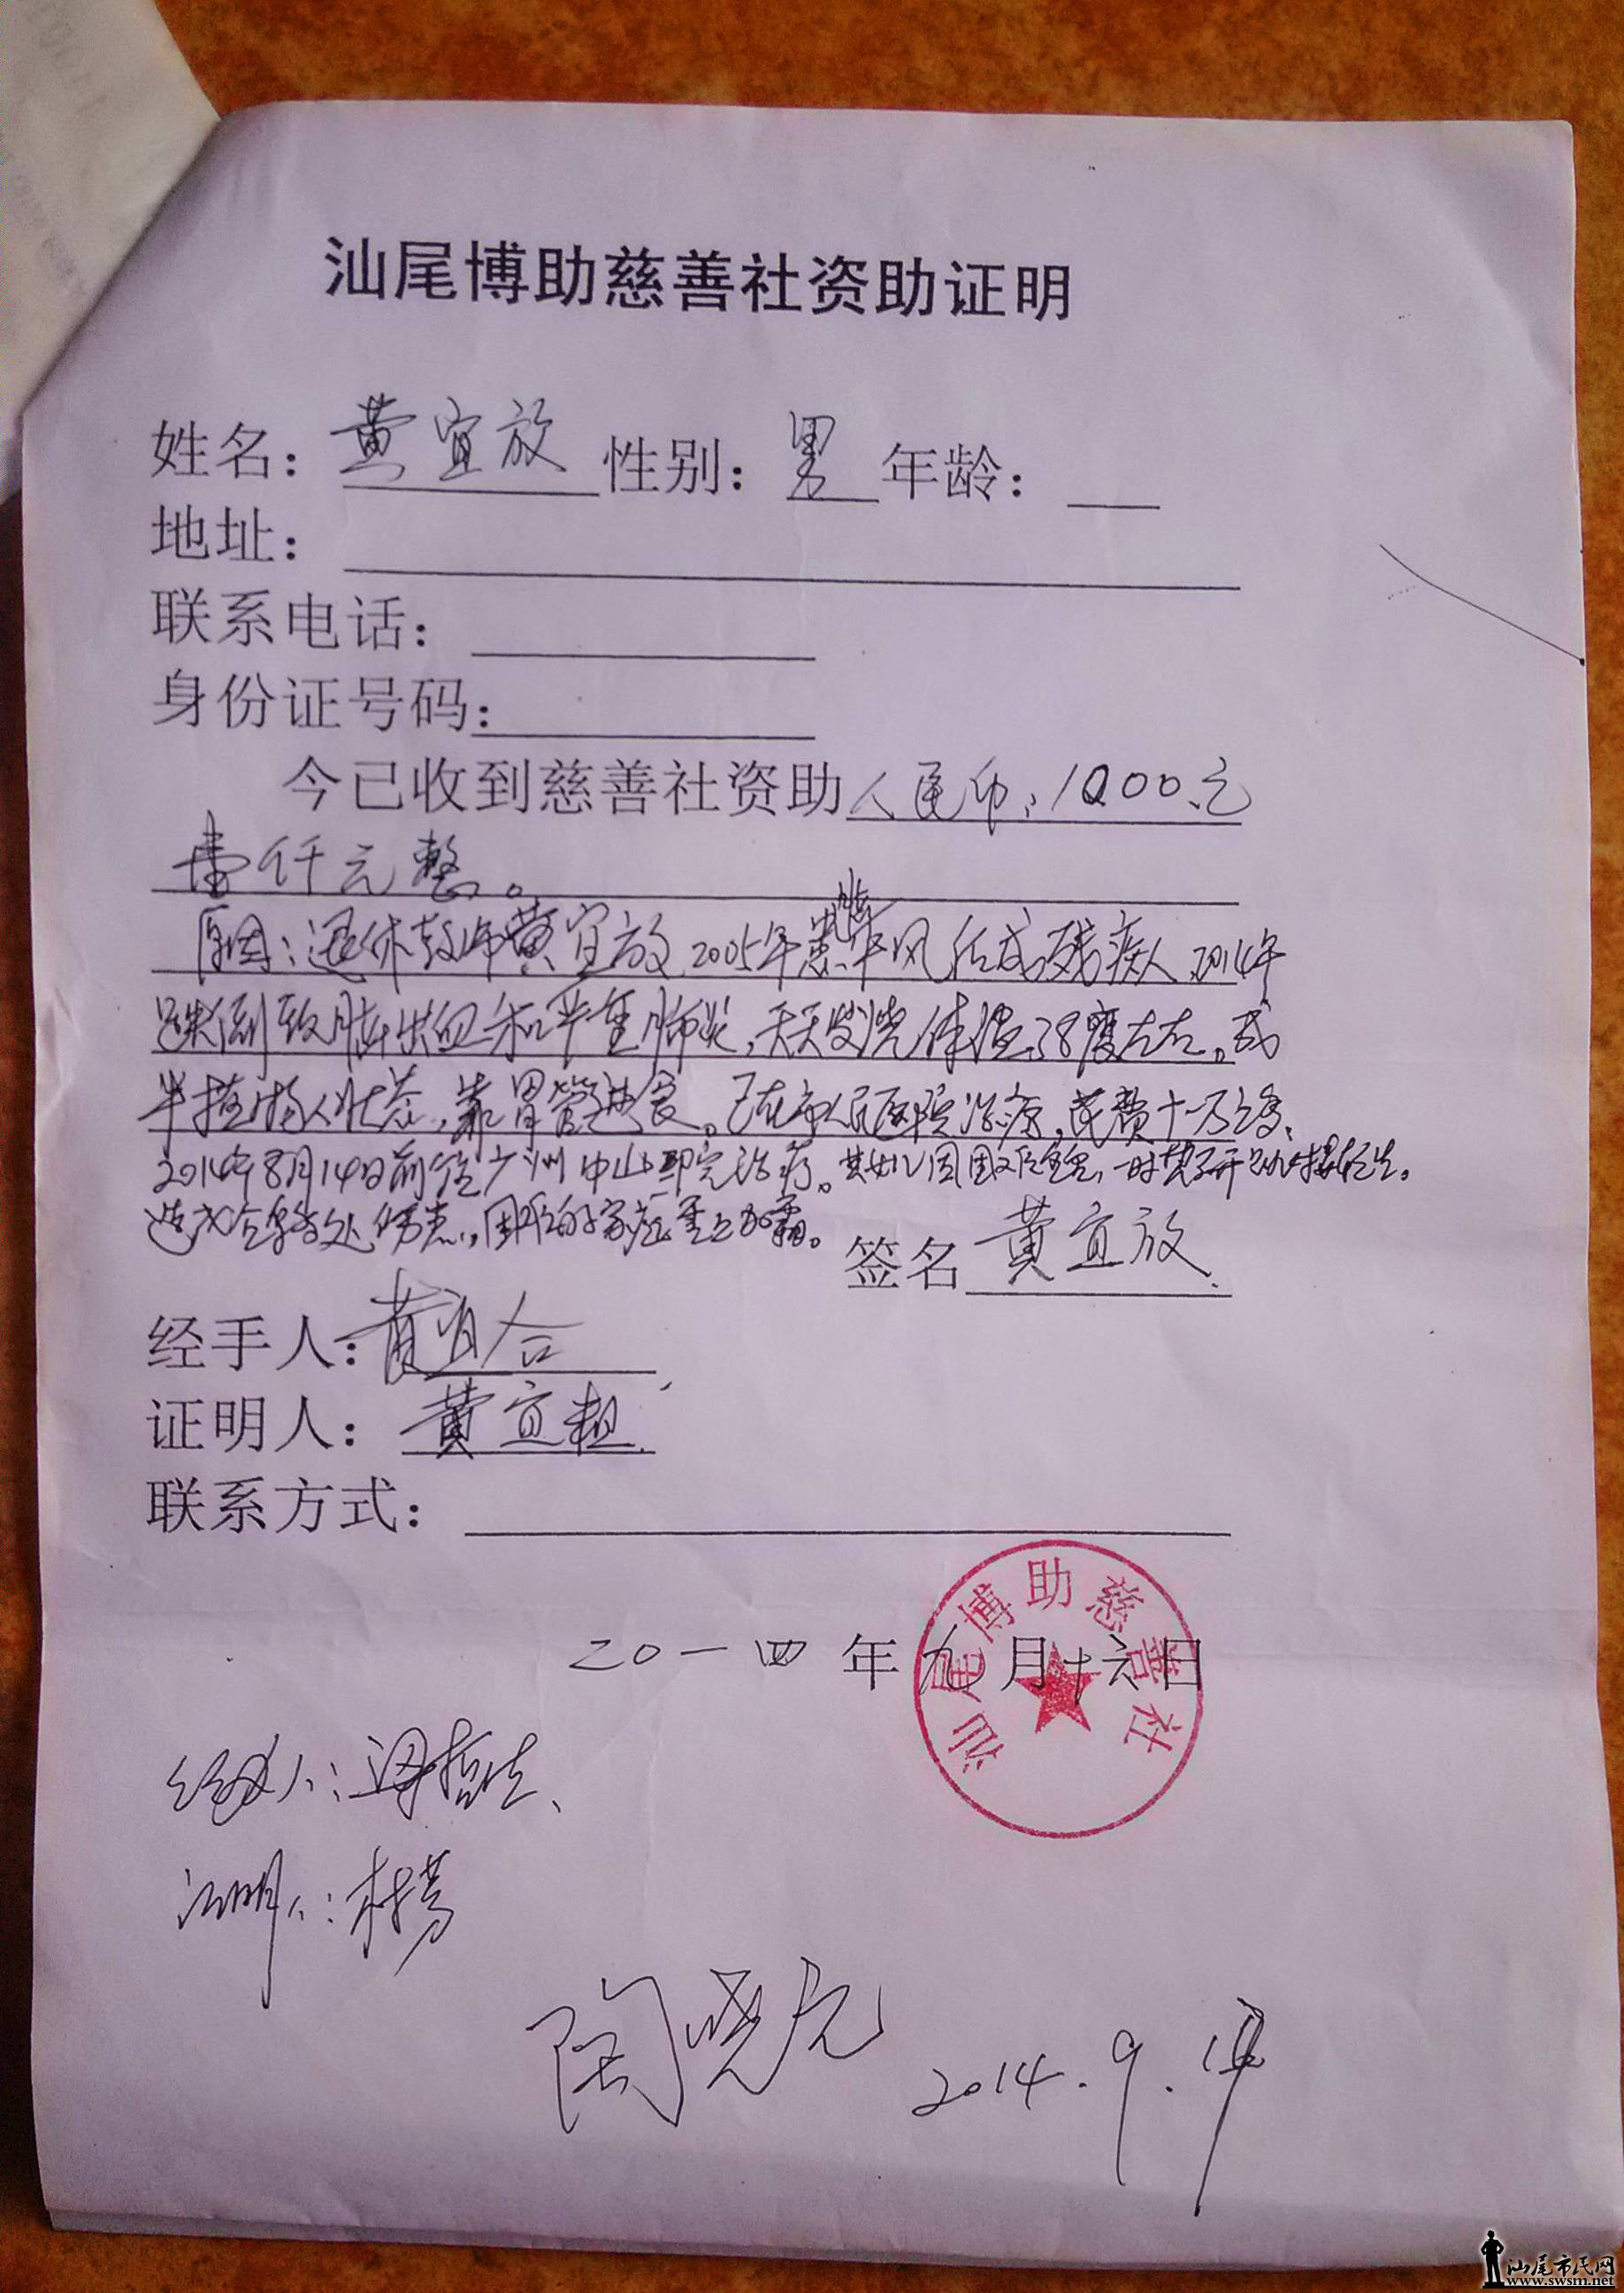 汕尾博助慈善社资助证明
姓名：黄宜放 性别：男 年龄：
地址：
联系电话：
身份证号码：
今已收到慈善社资助人民币：1000元
壹仟元整。
原因：退休教师黄宜放2005年患中风后成残疾人，2014年
跌倒致脑出血和严重肺炎，天天发烧体温38度左右。成
半植物人状态，靠胃管进食。在市人民医院治疗，花费十一万多，
2014年8月14日前往广州中山 治疗。其女儿因
造成 处 ，困难的家庭雪上加霜。 签名 黄宜放
经手人：黄宜合
证明人：黄宜粗
联系方式：
汕尾博助慈善社
二〇一四年九月十六日
经办人：
证明人：
陶晓
2014.9.
汕尾市民网
www.swsm.net